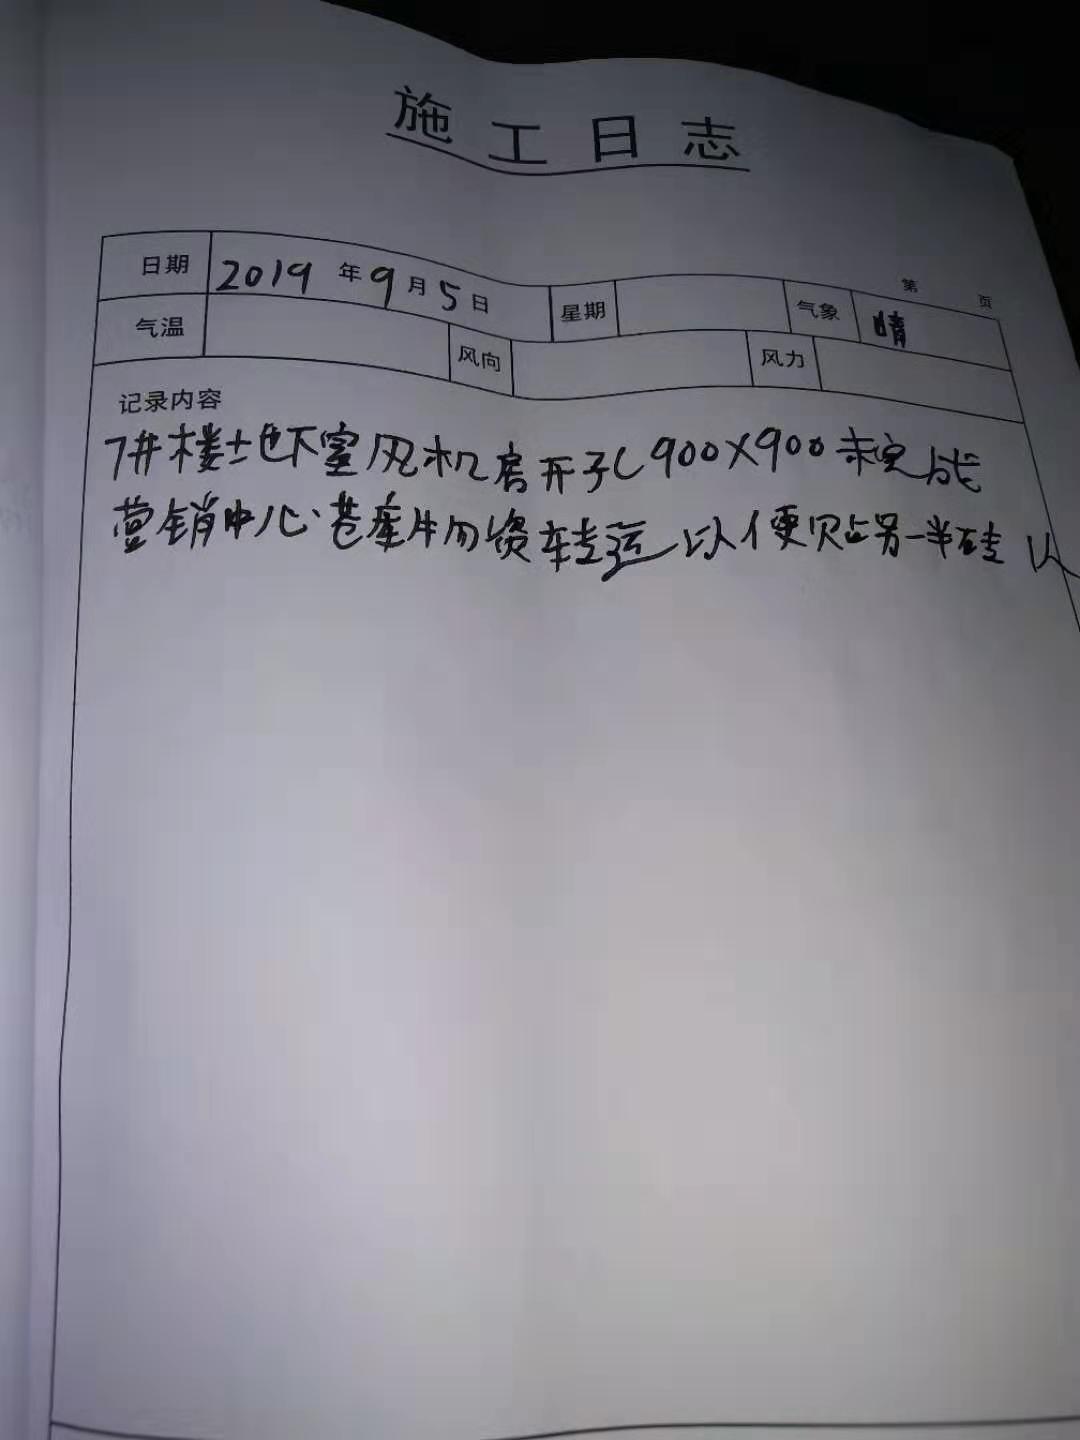 施工日志
第 页
日期 2019年9月5日 星期 气象 晴
气温 风向 风力
记录内容
7井楼地下室风机房开孔900X900未完成
营销中心 物资转运 以便贴另一半砖